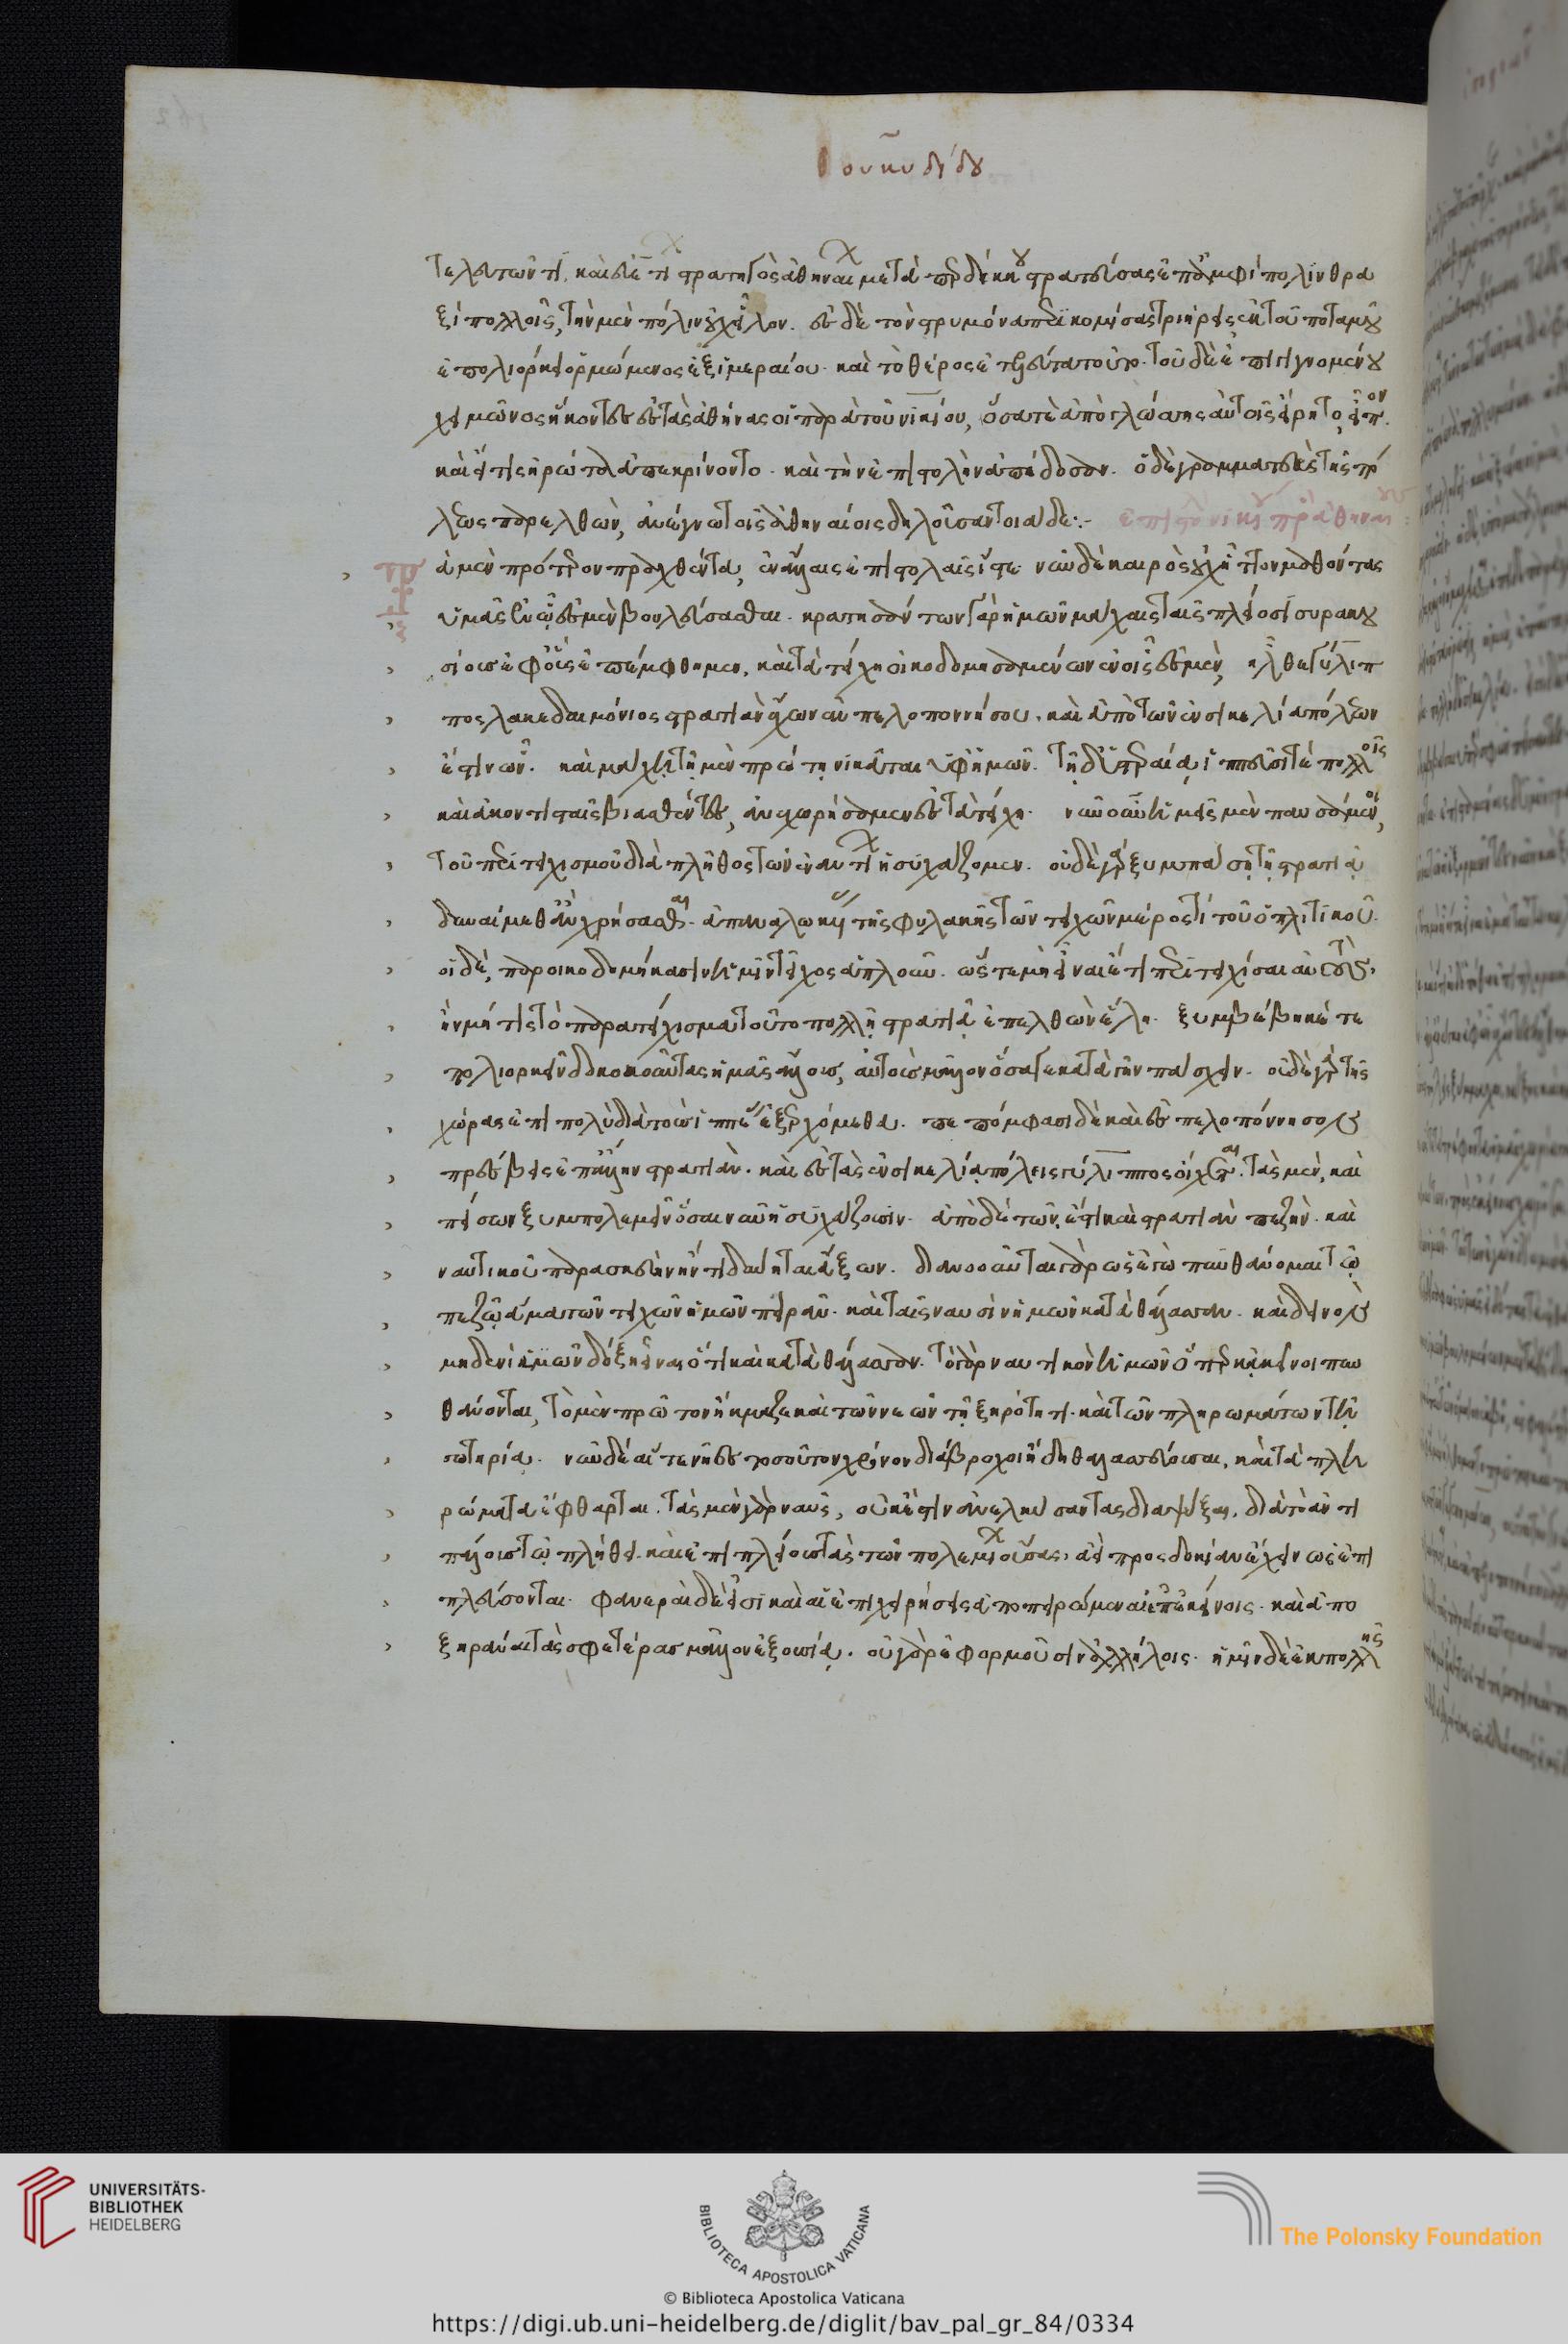 Θουκυδίδου
τελευτῶντι, καὶ εὐετίων στρατηγὸς ἀθηναίων μετὰ περδίκκου στρατεύσας ἐπ' ἀμφίπολιν θρα
ξὶ πολλοῖς, τὴν μὲν πόλιν οὐχ εἷλεν. ἐς δὲ τὸν στρυμόνα περικομίσας τριήρεις ἐκ τοῦ ποταμοῦ
ἐπολιόρκει ὁρμώμενος ἐξ ἱμεραίου. καὶ τὸ θέρος ἐτελεύτα τοῦτο. τοῦ δὲ ἐπιγιγνομένου
χειμῶνος ἥκοντες ἐς τὰς ἀθήνας οἱ παρὰ τοῦ νικίου, ὅσα τε ἀπὸ γλώσσης αὐτοῖς εἴρητο, εἶπον.
καὶ εἴ τις ἠρώτα ἀπεκρίνοντο. καὶ τὴν ἐπιστολὴν ἀπέδοσαν. ὁ δὲ γραμματεὺς τῆς πό
λεως παρελθὼν, ἀνέγνω τοῖς ἀθηναίοις δηλοῦσαν τοιάδε:- ἐπιστολὴ νικίου πρὸς ἀθηναίους:
ἃ μὲν πρότερον πραχθέντα, ἐν ἄλλαις ἐπιστολαῖς ἴστε. νῦν δὲ καιρὸς οὐχ ἧττον μαθόντας
ὑμᾶς ἐν ᾧ ἐσμὲν βουλεύσασθαι. κρατησάντων γὰρ ἡμῶν μάχαις ταῖς πλείοσι συρακου
σίους ἐφ' οὓς ἐπέμφθημεν, καὶ τὰ τείχη οἰκοδομησαμένων ἐν οἷς ἐσμὲν, ἦλθε γύλιπ
πος λακεδαιμόνιος στρατιὰν ἔχων ἐκ πελοποννήσου. καὶ ἀπὸ τῶν ἐν σικελία πόλεων
ἔστιν ὧν. καὶ μάχῃ τῇ μὲν πρώτῃ νικᾶται ὑφ' ἡμῶν. τῇ δ' ὑστεραίᾳ, ἱππεῦσί τε πολλοῖς
καὶ ἀκοντισταῖς βιασθέντες, ἀνεχωρήσαμεν ἐς τὰ τείχη. νῦν οὖν ἡμεῖς μὲν παυσάμενοι,
τοῦ περιτειχισμοῦ διὰ πλῆθος τῶν ἐναντίων ἡσυχάζομεν. οὐδὲ γὰρ ξυμπάσῃ τῇ στρατιᾷ
δυναίμεθ' ἂν χρήσασθαι. ἀπαναλωκυίας τῆς φυλακῆς τῶν τειχῶν μέρος τί τοῦ ὁπλιτικοῦ.
οἱ δὲ, παροικοδομήκασιν ἡμῖν τεῖχος ἁπλοῦν. ὥστε μὴ εἶναι ἔτι περιτειχίσαι αὐτοὺς,
ἢν μή τις τὸ παρατείχισμα τοῦτο πολλῇ στρατιᾷ ἐπελθὼν ἕλῃ. ξυμβέβηκέ τε
πολιορκεῖν δοκοῦντας ἡμᾶς ἄλλους, αὐτοὺς μᾶλλον ὅσα γε κατὰ γῆν πάσχειν. οὐδὲ γὰρ τῆς
χώρας ἐπὶ πολὺ διὰ τοὺς ἱππέας ἐξερχόμεθα. πεπόμφασι δὲ καὶ ἐς πελοπόννησον
πρέσβεις ἐπ' ἄλλην στρατιὰν. καὶ ἐς τὰς ἐν σικελίᾳ πόλεις γύλιππος οἴχεται. τὰς μὲν, καὶ
πείσων ξυμπολεμεῖν ὅσαι νῦν ἡσυχάζουσιν. ἀπὸ δὲ τῶν, ἔτι καὶ στρατιὰν πεζὴν. καὶ
ναυτικοῦ παρασκευὴν ἤν τι δύνηται ἄξων. διανοοῦνται γὰρ ὡς ἐγὼ πυνθάνομαι τῷ
πεζῷ ἅμα τῶν τειχῶν ἡμῶν πειρᾶν. καὶ ταῖς ναυσὶν ἡμῶν κατὰ θάλασσαν. καὶ δεινὸν
μηδενὶ ἡμῶν δόξῃ εἶναι ὅτι καὶ κατὰ θάλασσαν. τὸ γὰρ ναυτικὸν ἡμῶν ὅπερ κἀκεῖνοι πυν
θάνονται, τὸ μὲν πρῶτον ἤκμαζε καὶ τῶν νεῶν τῇ ξηρότητι. καὶ τῶν πληρωμάτων τῇ
σωτηρίᾳ. νῦν δὲ αἵ τε νῆες τοσοῦτον χρόνον διάβροχοι ἤδη θαλασσεύουσαι, καὶ τὰ πλη
ρώματα ἔφθαρται. τὰς μὲν γὰρ ναῦς, οὐκ ἔστιν ἀνελκύσαντας διαψύξαι, διὰ τὸ ἀντι
πάλους τῷ πλήθει καὶ ἔτι πλείους τὰς τῶν πολεμίων οὔσας, ἀεὶ προσδοκίαν ἔχειν ὡς ἐπι
πλεύσονται. φανεραὶ δέ εἰσι καὶ αἱ ἐπιχειρήσεις ἀποπειρώμεναι ἐπ' ἐκείνοις. καὶ ἀπο
ξηρᾶναι τὰς σφετέρας μᾶλλον ἐξουσία. οὐ γὰρ ἐφορμοῦσιν ἀλλήλοις. ἡμῖν δὲ ἐκ πολλῆς
UNIVERSITÄTS-
BIBLIOTHEK
HEIDELBERG
BIBLIOTECA APOSTOLICA VATICANA
The Polonsky Foundation
© Biblioteca Apostolica Vaticana
https://digi.ub.uni-heidelberg.de/diglit/bav_pal_gr_84/0334